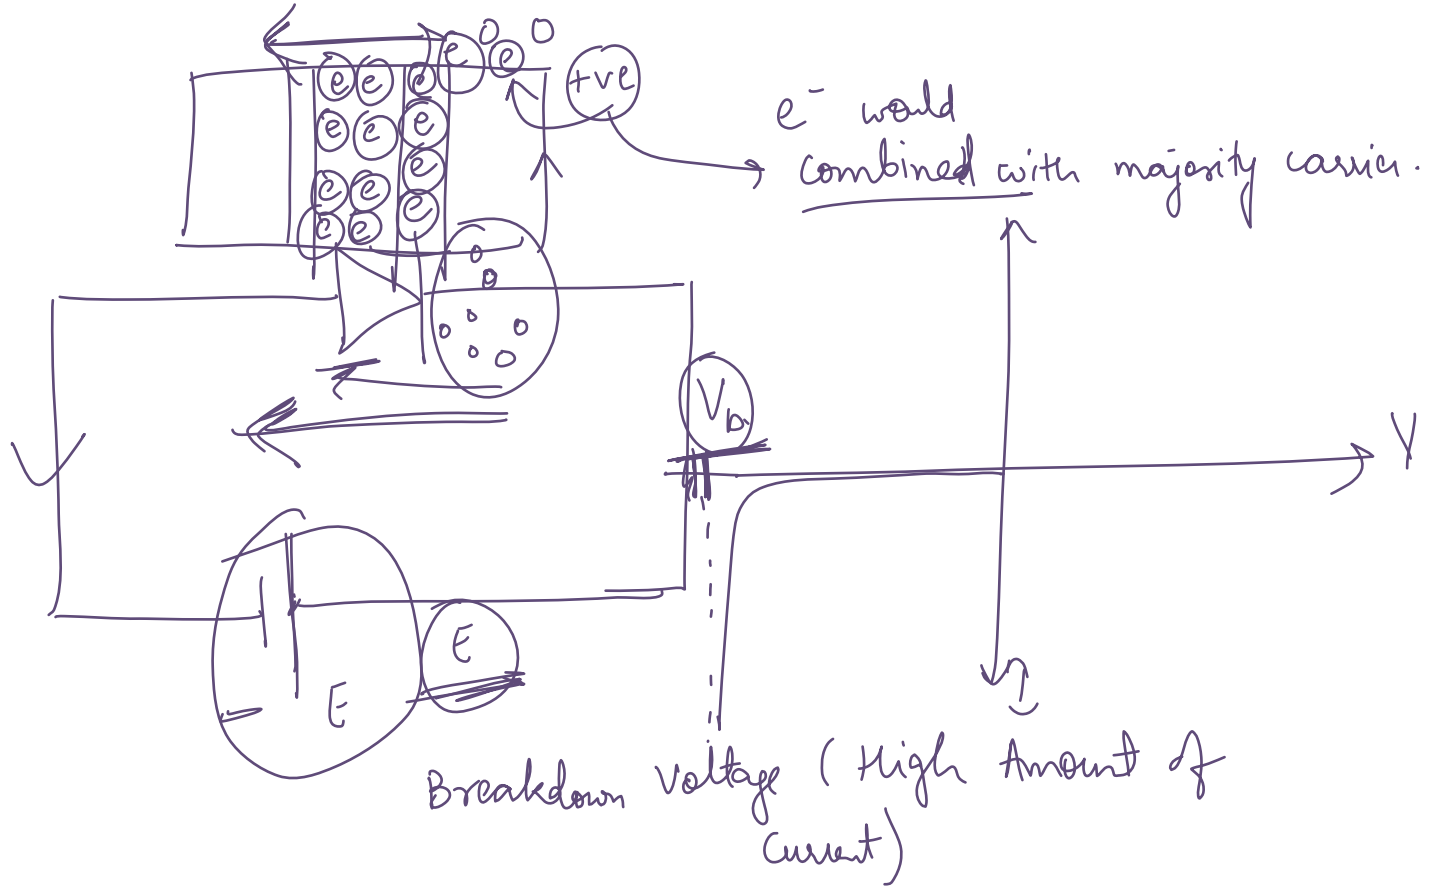 e e e e e
+ve
e e e
e e e
e e e
e⁻ would
combined with majority carrier.
V_b
Y
E
E
I
Breakdown Voltage (High Amount of
Current)